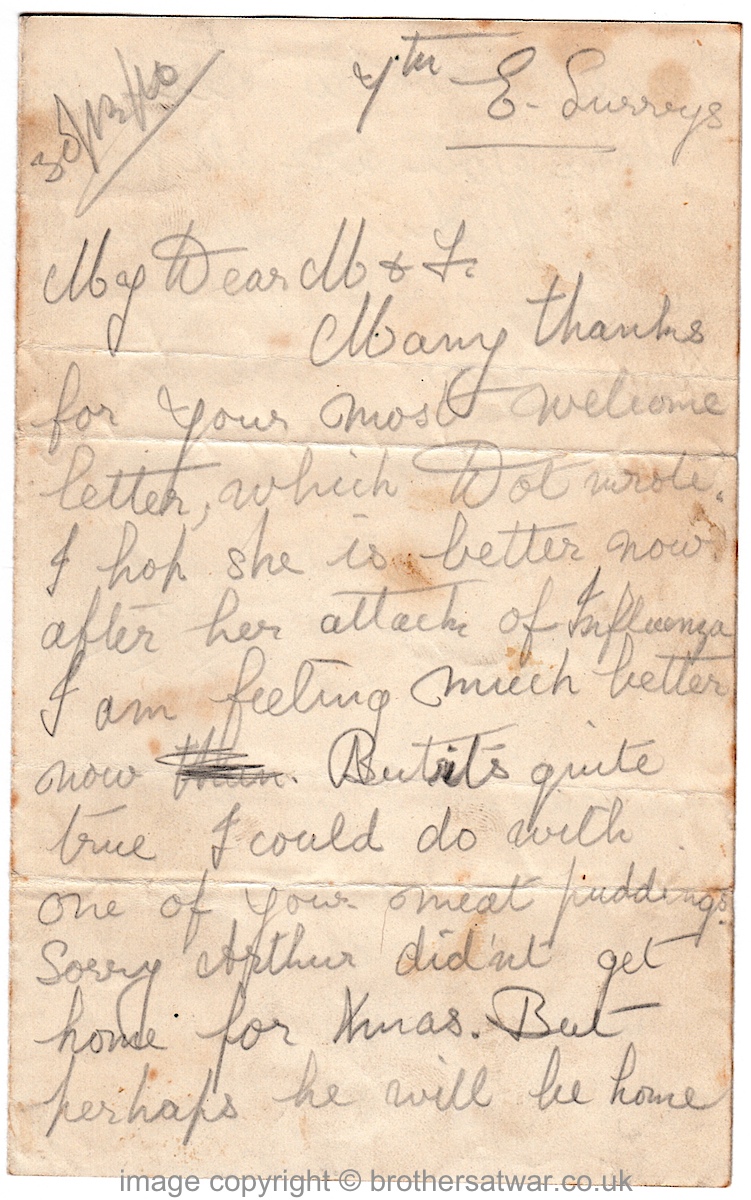 30/12/16
7th E. Surreys
My Dear M & F.
Many thanks
for your most welcome
letter, which Dot wrote.
I hop she is better now.
after her attack of Influenza
I am feeling much better
now than. But it's quite
true I could do with
one of your meat puddings.
Sorry Arthur did'nt get
home for Xmas. But
perhaps he will be home
image copyright © brothersatwar.co.uk